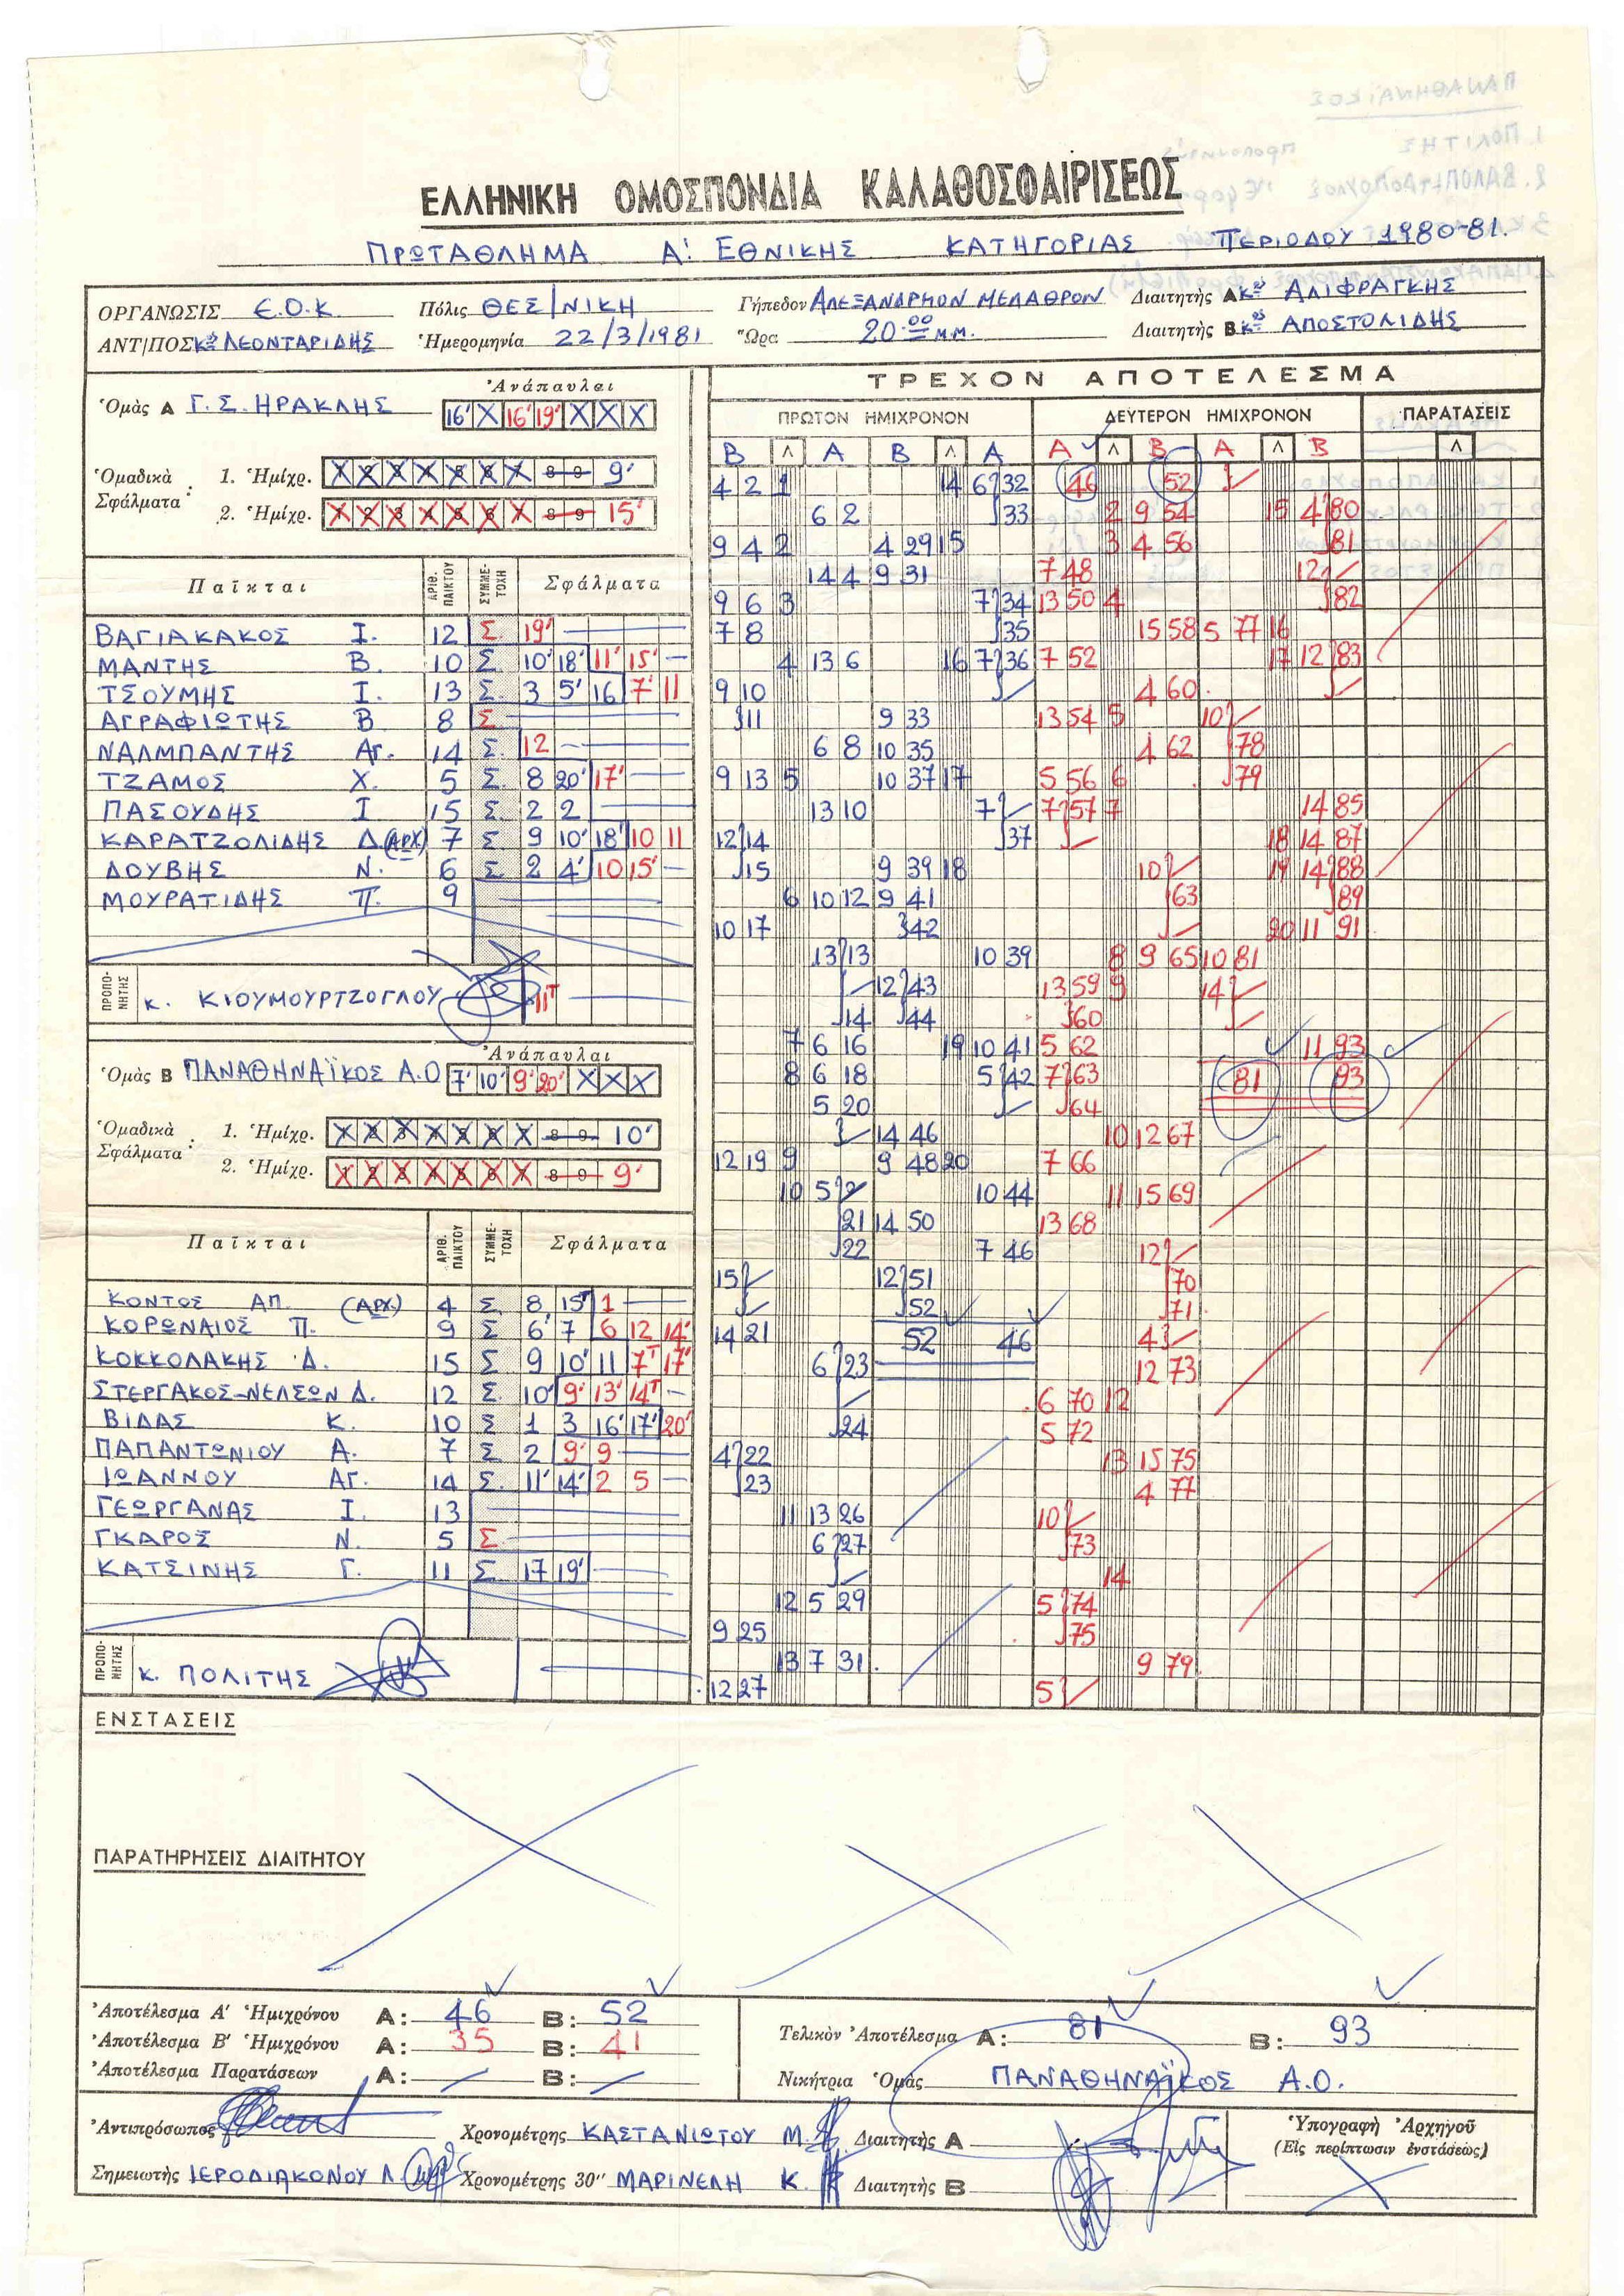 ΕΛΛΗΝΙΚΗ ΟΜΟΣΠΟΝΔΙΑ ΚΑΛΑΘΟΣΦΑΙΡΙΣΕΩΣ
ΠΡΩΤΑΘΛΗΜΑ Α' ΕΘΝΙΚΗΣ ΚΑΤΗΓΟΡΙΑΣ ΠΕΡΙΟΔΟΥ 1980-81.
ΟΡΓΑΝΩΣΙΣ Ε.Ο.Κ. Πόλις ΘΕΣ/ΝΙΚΗ Γήπεδον ΑΛΕΞΑΝΔΡΕΙΟΝ ΜΕΛΑΘΡΟΝ Διαιτητὴς Α κος ΑΛΙΦΡΑΓΚΗΣ
ΑΝΤ/ΠΟΣ Κος ΛΕΟΝΤΑΡΙΔΗΣ Ἡμερομηνία 22/3/1981 Ὥρα 20.00 Μ.Μ. Διαιτητὴς Β κος ΑΠΟΣΤΟΛΙΔΗΣ
Ἀνάπαυλαι
Ὁμὰς Α Γ.Σ. ΗΡΑΚΛΗΣ 16' X 16' 19' X X X
Ὁμαδικὰ Σφάλματα : 1. Ἡμίχρ. 8 9 9'
2. Ἡμίχρ. 1 2 3 4 5 6 7 8 9 15'
Παῖκται ΑΡΙΘ. ΠΑΙΚΤΟΥ ΣΥΜΜΕΤΟΧΗ Σφάλματα
ΒΑΓΙΑΚΑΚΟΣ Ι. 12 Σ. 19'
ΜΑΝΤΗΣ Β. 10 Σ. 10' 18' 11' 15'
ΤΣΟΥΜΗΣ Ι. 13 Σ. 3 5' 16 7' 11
ΑΓΡΑΦΙΩΤΗΣ Β 8 Σ.
ΝΑΛΜΠΑΝΤΗΣ Αγ. 14 Σ. 12
ΤΖΑΜΟΣ Χ. 5 Σ 8 20' 17'
ΠΑΣΟΥΔΗΣ Ι 15 Σ 2 2
ΚΑΡΑΤΖΟΛΙΔΗΣ Δ (ΑΡΧ) 7 Σ 9 10' 18' 10 11
ΔΟΥΒΗΣ Ν. 6 Σ 2 4' 10 15'
ΜΟΥΡΑΤΙΔΗΣ Π. 9
ΠΡΟΠΟΝΗΤΗΣ Κ. ΚΙΟΥΜΟΥΡΤΖΟΓΛΟΥ 11Τ
Ἀνάπαυλαι
Ὁμὰς Β ΠΑΝΑΘΗΝΑΪΚΟΣ Α.Ο 7' 10' 9' 20' X X X
Ὁμαδικὰ Σφάλματα : 1. Ἡμίχρ. 8 9 10'
2. Ἡμίχρ. 1 2 3 4 5 6 7 8 9 9'
Παῖκται ΑΡΙΘ. ΠΑΙΚΤΟΥ ΣΥΜΜΕΤΟΧΗ Σφάλματα
ΚΟΝΤΟΣ ΑΠ. (ΑΡΧ) 4 Σ. 8 15' 1
ΚΟΡΩΝΑΙΟΣ Π. 9 Σ 6' 7 6 12 14'
ΚΟΚΚΟΛΑΚΗΣ Δ. 15 Σ 9 10' 11 7Τ 17'
ΣΤΕΡΓΑΚΟΣ-ΝΕΛΣΩΝ Δ. 12 Σ. 10' 9' 13' 14Τ
ΒΙΔΑΣ Κ. 10 Σ 1 3 16' 17' 20'
ΠΑΠΑΝΤΩΝΙΟΥ Α. 7 Σ 2 9' 9
ΙΩΑΝΝΟΥ ΑΓ. 14 Σ. 11' 14' 2 5
ΓΕΩΡΓΑΝΑΣ Ι. 13
ΓΚΑΡΟΣ Ν. 5 Σ
ΚΑΤΣΙΝΗΣ Γ. 11 Σ 17 19'
ΠΡΟΠΟΝΗΤΗΣ Κ. ΠΟΛΙΤΗΣ
ΤΡΕΧΟΝ ΑΠΟΤΕΛΕΣΜΑ
ΠΡΩΤΟΝ ΗΜΙΧΡΟΝΟΝ ΔΕΥΤΕΡΟΝ ΗΜΙΧΡΟΝΟΝ ΠΑΡΑΤΑΣΕΙΣ
Β Λ Α Β Λ Α Α Λ Β Α Λ Β Λ
4 2 1 14 6 32 46 52
6 2 33 2 9 54 15 4 80
9 4 2 4 29 15 3 4 56 81
14 4 9 31 7 48 12
9 6 3 7 34 13 50 4 82
7 8 35 15 58 5 77 16
4 13 6 16 7 36 7 52 17 12 83
9 10 4 60
11 9 33 13 54 5 10
6 8 10 35 4 62 78
9 13 5 10 37 17 5 56 6 79
13 10 7 7 57 7 14 85
12 14 37 18 14 87
15 9 39 18 10 19 14 88
6 10 12 9 41 63 89
10 17 42 20 11 91
13 13 10 39 8 9 65 10 81
12 43 13 59 9 14
14 44 60
7 6 16 19 10 41 5 62 11 93
8 6 18 5 42 7 63 81 93
5 20 64
14 46 10 12 67
12 19 9 9 48 20 7 66
10 5 10 44 11 15 69
21 14 50 13 68
22 7 46 12
15 12 51 70
52 71
14 21 52 46 4
6 23 12 73
6 70 12
24 5 72
4 22 13 15 75
23 4 77
11 13 26 10
6 27 73
14
12 5 29 5 74
9 25 75
13 7 31 9 79
12 27 5
ΕΝΣΤΑΣΕΙΣ
ΠΑΡΑΤΗΡΗΣΕΙΣ ΔΙΑΙΤΗΤΟΥ
Ἀποτέλεσμα Α' Ἡμιχρόνου Α: 46 Β: 52
Ἀποτέλεσμα Β' Ἡμιχρόνου Α: 35 Β: 41
Ἀποτέλεσμα Παρατάσεων Α: — Β: —
Τελικὸν Ἀποτέλεσμα Α: 81 Β: 93
Νικήτρια Ὁμὰς ΠΑΝΑΘΗΝΑΪΚΟΣ Α.Ο.
Ἀντιπρόσωπος Χρονομέτρης ΚΑΣΤΑΝΙΩΤΟΥ Μ. Διαιτητὴς Α
Σημειωτὴς ΙΕΡΟΔΙΑΚΟΝΟΥ Λ Χρονομέτρης 30'' ΜΑΡΙΝΕΛΗ Κ. Διαιτητὴς Β
Ὑπογραφὴ Ἀρχηγοῦ
(Εἰς περίπτωσιν ἐνστάσεως)